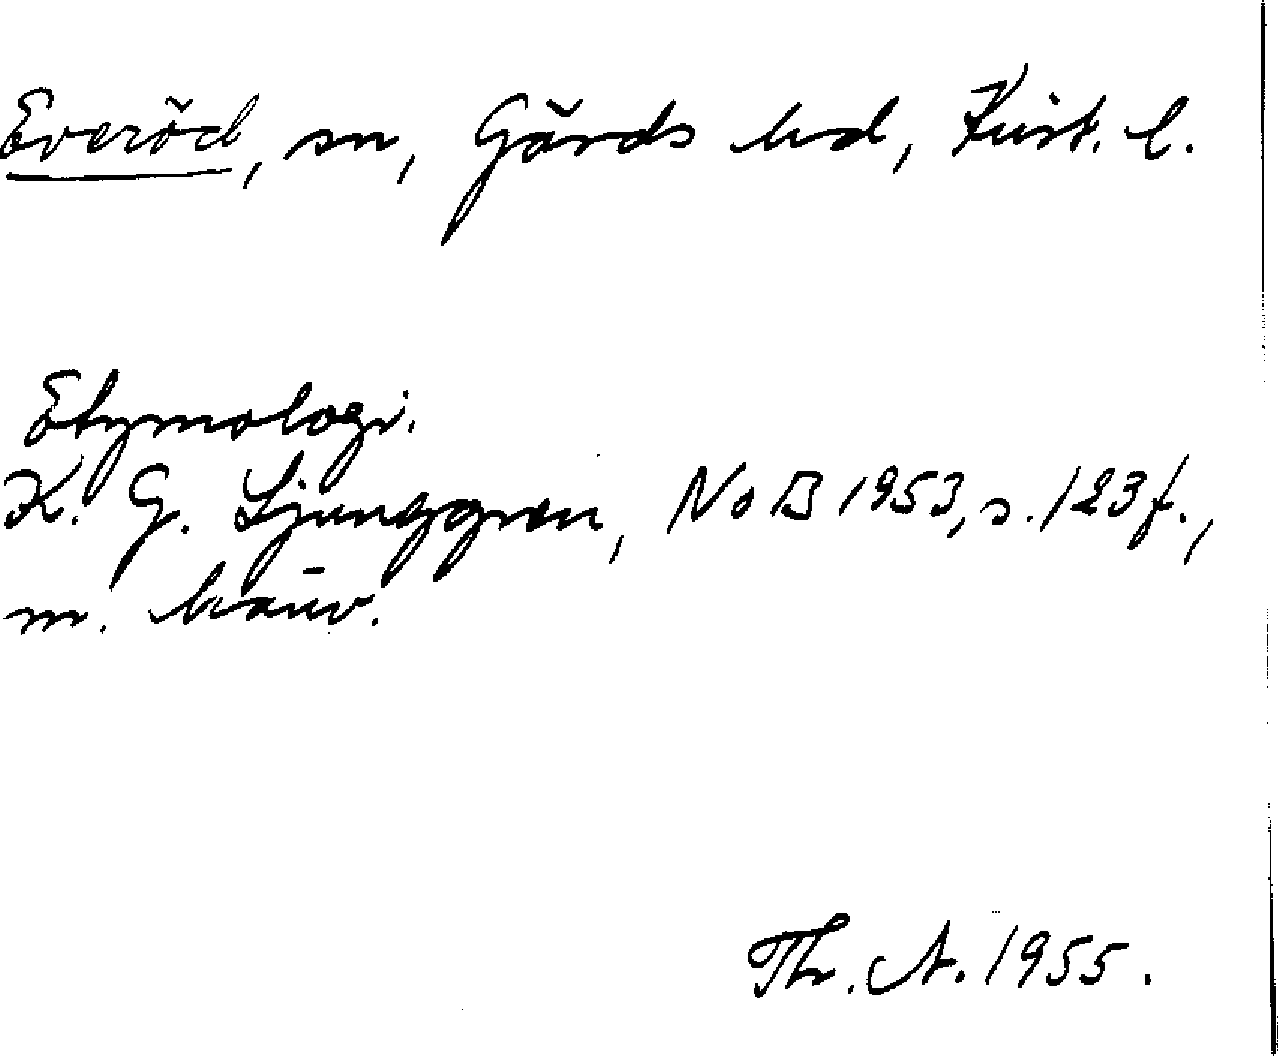 Everöd, sn, Gärds hd, Krist. l.
Etymologi.
K. G. Ljunggren, NoB 1953, s. 123 f.,
m. hänv.
Th. A. 1955.